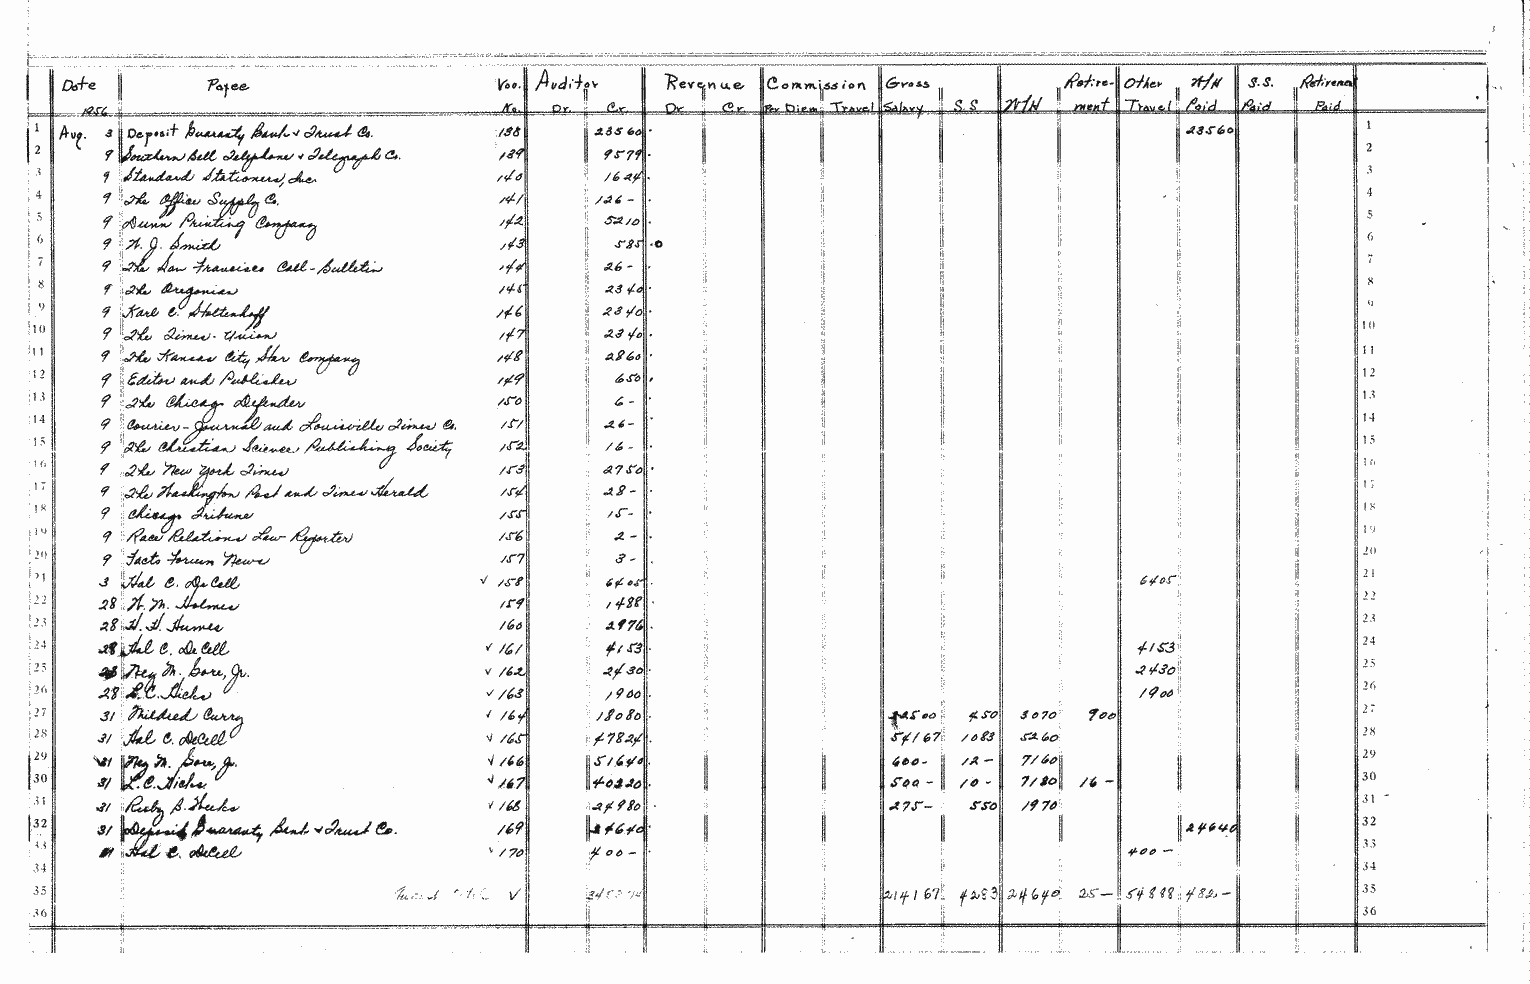 Date Payee Vou. Auditor Revenue Commission Gross Retire- Other W/H S.S. Retirement
1956 No. Dr. Cr. Dr. Cr. Per Diem Travel Salary S.S W/H ment Travel Paid Paid Paid
1 Aug. 3 Deposit Guaranty Bank & Trust Co. 138 23560 23560 1
2 9 Southern Bell Telephone & Telegraph Co. 139 9579 2
3 9 Standard Stationers, Inc. 140 1624 3
4 9 The Office Supply Co. 141 126 - 4
5 9 Dunn Printing Company 142 5210 5
6 9 W. J. Smith 143 585 6
7 9 The San Francisco Call-Bulletin 144 26 - 7
8 9 The Oregonian 145 2340 8
9 9 Karl C. Stoltenhoff 146 2340 9
10 9 The Times-Union 147 2340 10
11 9 The Kansas City Star Company 148 2860 11
12 9 Editor and Publisher 149 650 12
13 9 The Chicago Defender 150 6 - 13
14 9 Courier-Journal and Louisville Times Co. 151 26 - 14
15 9 The Christian Science Publishing Society 152 16 - 15
16 9 The New York Times 153 2750 16
17 9 The Washington Post and Times Herald 154 28 - 17
18 9 Chicago Tribune 155 15 - 18
19 9 Race Relations Law Reporter 156 2 - 19
20 9 Facts Forum News 157 3 - 20
21 3 Hal C. DeCell √ 158 6405 6405 21
22 28 W. M. Holmes 159 1488 22
23 28 H. H. Humes 160 2976 23
24 28 Hal C. DeCell √ 161 4153 4153 24
25 28 Ney M. Gore, Jr. √ 162 2430 2430 25
26 28 L. C. Hicks √ 163 1900 1900 26
27 31 Mildred Curry √ 164 18080 22500 450 3070 900 27
28 31 Hal C. DeCell √ 165 47824 54167 1083 5260 28
29 31 Ney M. Gore, Jr. √ 166 51640 600 - 12 - 7160 29
30 31 L. C. Hicks √ 167 40220 500 - 10 - 7180 16 - 30
31 31 Ruby S. Weeks √ 168 24980 275 - 550 1970 31
32 31 Deposit Guaranty Bank & Trust Co. 169 24640 24640 32
33 Hal C. DeCell √ 170 400 - 400 - 33
34 34
35 √ 214167 4283 24640 25 - 54888 482 - 35
36 36